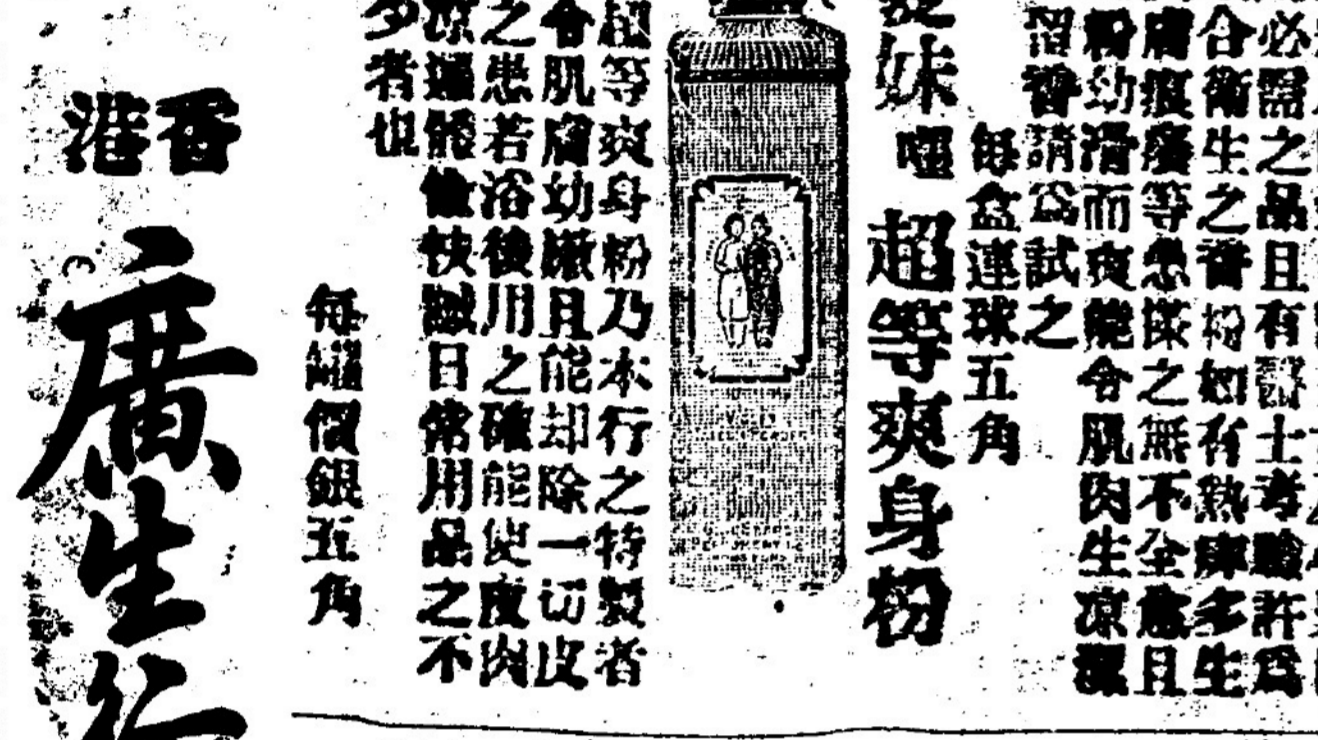 必需之品且有醫士考驗許爲
合衛生之香粉如有熱痱多生
膚痕癢等患搽之無不全愈且
粉幼滑而爽能令肌肉生凉潔
留香請爲試之
每盒連球五角
妹嘜
超等爽身粉
超等爽身粉乃本行之特製者
令肌膚幼嫩且能却除一切皮
之患若浴後用之確能使皮肉
凉遍體愉快誠日常用品之不
多者也
每罐價銀五角
香港
廣生行